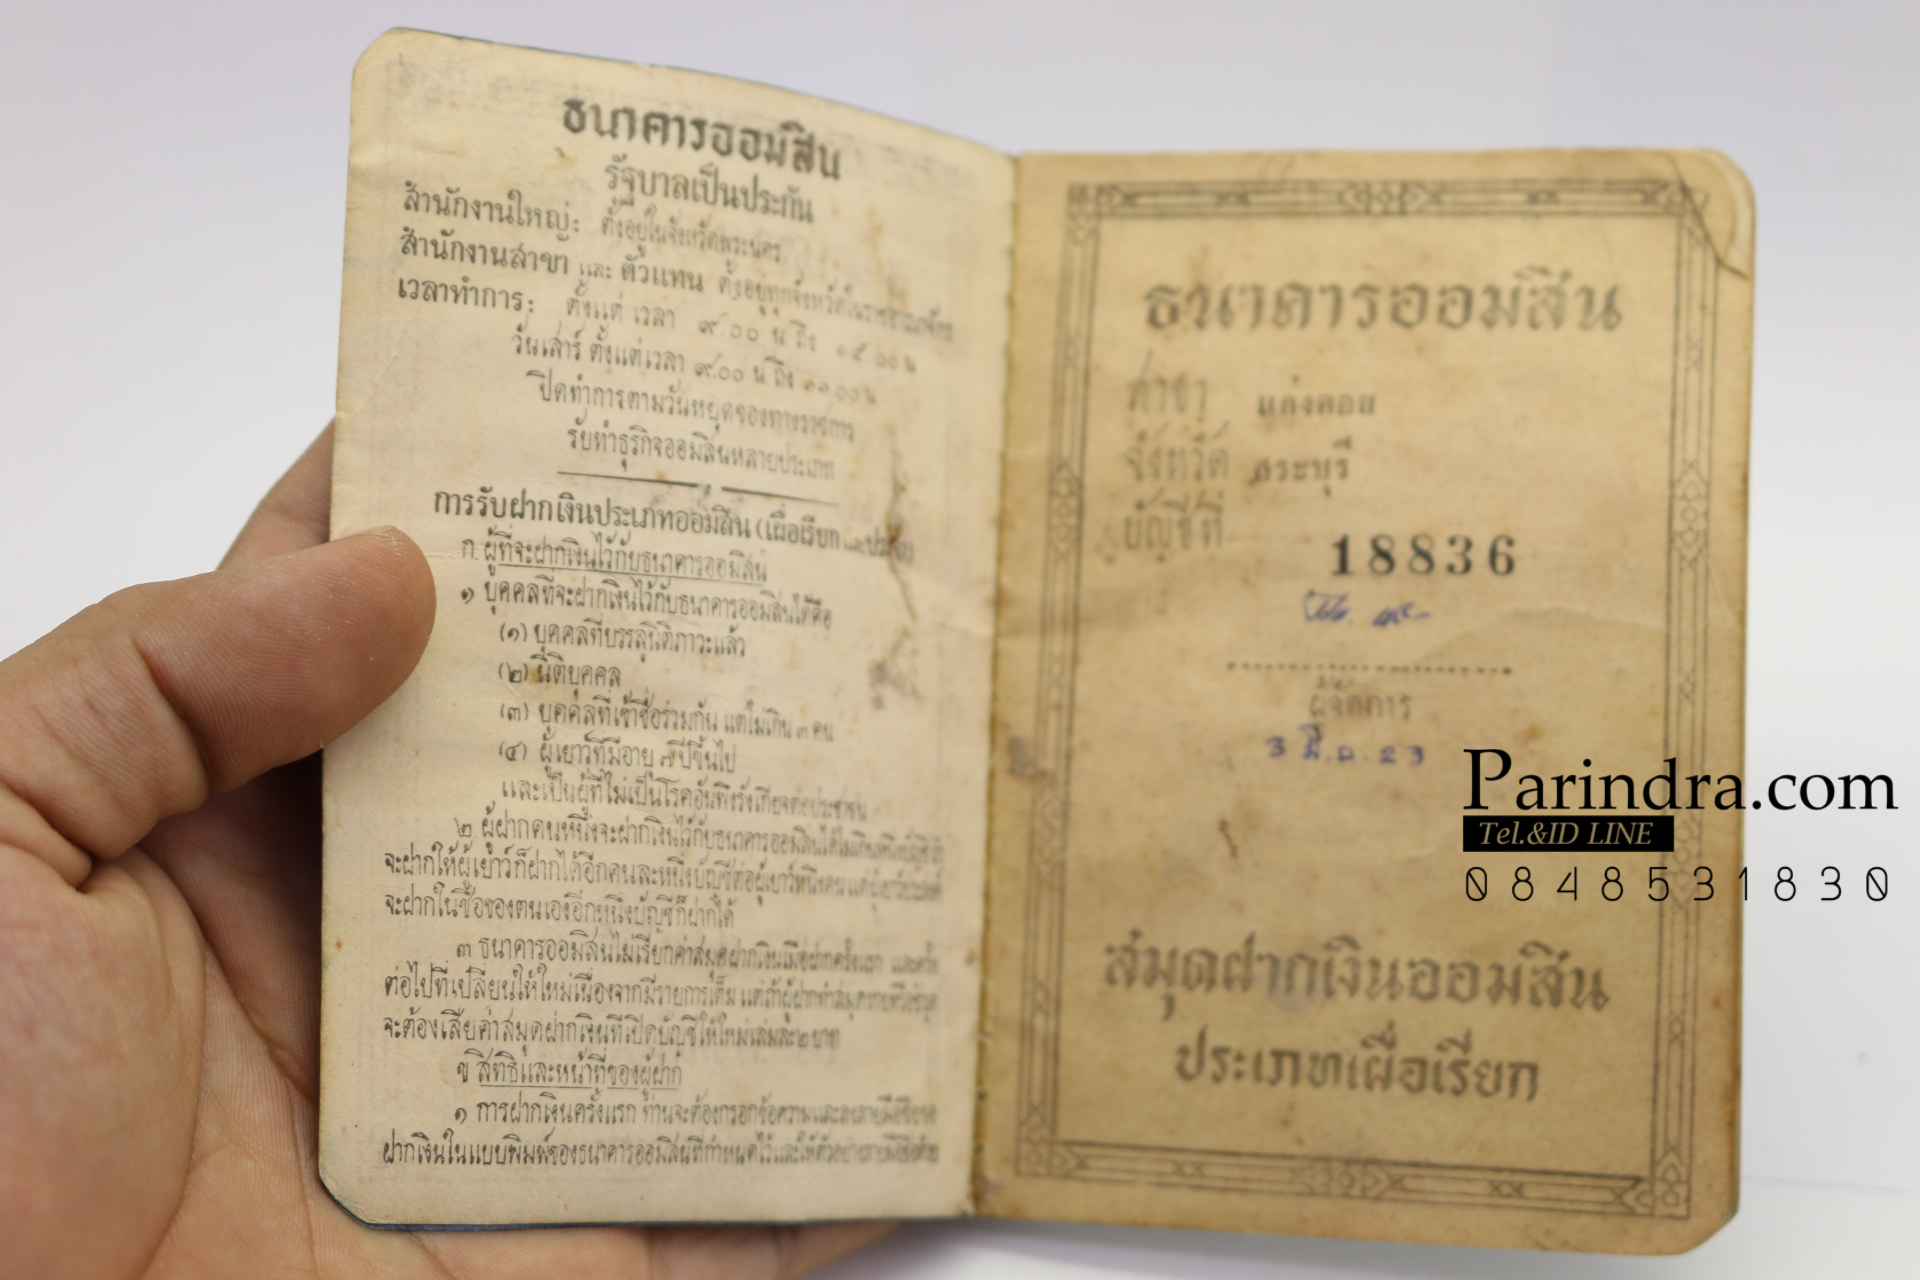 ธนาคารออมสิน
รัฐบาลเป็นประกัน
สำนักงานใหญ่: ตั้งอยู่ในจังหวัดพระนคร
สำนักงานสาขา และ ตัวแทน ตั้งอยู่ทุกจังหวัดในราชอาณาจักร
เวลาทำการ: ตั้งแต่ เวลา ๙.๐๐ น ถึง ๑๕.๐๐ น
วันเสาร์ ตั้งแต่เวลา ๙.๐๐ น ถึง
ปิดทำการตามวันหยุดของทางราชการ
รับทำธุรกิจออมสินหลายประเภท
การรับฝากเงินประเภทออมสิน (เผื่อเรียก และประจำ)
ก. ผู้ที่จะฝากเงินไว้กับธนาคารออมสิน
๑ บุคคลที่จะฝากเงินไว้กับธนาคารออมสินได้คือ
(๑) บุคคลที่บรรลุนิติภาวะแล้ว
(๒) นิติบุคคล
(๓) บุคคลที่เข้าชื่อร่วมกัน แต่ไม่เกิน ๓ คน
(๔) ผู้เยาว์ที่มีอายุ ๗ ปีขึ้นไป
และเป็นผู้ที่ไม่เป็นโรคอันพึงรังเกียจต่อประชาชน
๒. ผู้ฝากคนหนึ่งจะฝากเงินไว้กับธนาคารออมสินได้ไม่เกินหนึ่งบัญชี ถ้า
จะฝากให้ผู้เยาว์ก็ฝากได้อีกคนละหนึ่งบัญชีต่อผู้เยาว์หนึ่งคน แต่
จะฝากในชื่อของตนเองอีกหนึ่งบัญชีก็ฝากได้
๓ ธนาคารออมสินไม่เรียกค่าสมุดฝากเงินเมื่อฝากครั้งแรก และครั้ง
ต่อไปที่เปลี่ยนให้ใหม่เนื่องจากมีรายการเต็ม แต่ถ้าผู้ฝากทำสมุดหายหรือชำรุด
จะต้องเสียค่าสมุดฝากเงินที่เปิดบัญชีให้ใหม่เล่มละ ๒ บาท
ข สิทธิและหน้าที่ของผู้ฝาก
๑ การฝากเงินครั้งแรก ท่านจะต้องกรอกข้อความและลงลายมือชื่อขอ
ฝากเงินในแบบพิมพ์ของธนาคารออมสินที่กำหนดไว้และให้ตัวอย่างลายมือชื่อด้วย
ธนาคารออมสิน
สาขา แก่งคอย
จังหวัด สระบุรี
บัญชีที่
18836
ผู้จัดการ
3 มี.ค. 23
สมุดฝากเงินออมสิน
ประเภทเผื่อเรียก
Parindra.com
Tel.&ID LINE
0848531830